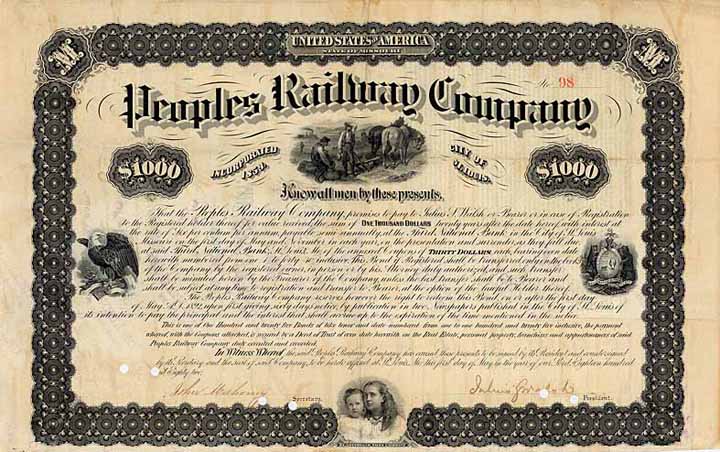 UNITED STATES OF AMERICA
STATE OF MISSOURI
M M
No 98
Peoples Railway Company
INCORPORATED 1859. CITY OF ST. LOUIS.
$1000 $1000
Know all men by these presents,
That the Peoples Railway Company, promises to pay to Julius S. Walsh or Bearer or in case of Registration
to the Registered holder hereof for value received, the sum of ONE THOUSAND DOLLARS twenty years after the date hereof with interest at
the rate of Six per centum per annum, payable semi annually at the Third National Bank in the City of St. Louis
Missouri on the first day of May and November in each year, on the presentation and surrender, as they fall due
at said Third National Bank, St. Louis Mo. of the annexed Coupons of THIRTY DOLLARS each, bearing even date
herewith numbered from one to forty inclusive. This Bond if Registered, shall be transferred only on the books
of the Company by the registered owner, in person or by his Attorney duly authorized, and such transfer
shall be annexed hereon by the Treasurer of the Company, unless the last transfer shall be to Bearer and
shall be subject at any time to registration and transfer to Bearer, at the option of the lawful Holder thereof.
The Peoples Railway Company reserves however the right to redeem this Bond, on or after the first day
of May, A.D. 1892, upon first giving sixty days notice, by publication in two Newspapers published in the City of St. Louis of
its intention to pay the principal and the interest that shall accrue up to the expiration of the time mentioned in the notice.
This is one of One Hundred and twenty five Bonds of like tenor and date numbered from one to one hundred and twenty five inclusive, the payment
whereof, with the Coupons attached, is secured by a Deed of Trust of even date herewith on the Real Estate, personal property, franchises and appurtenances of said
Peoples Railway Company duly executed and recorded.
In Witness Whereof the said Peoples Railway Company has caused these presents to be signed by its President and countersigned
by its Secretary and the seal of said Company, to be hereto affixed at St. Louis, Mo. this first day of May in the year of our Lord Eighteen hundred
and Eighty two.
John Mahoney Secretary. Julius S. Walsh President.